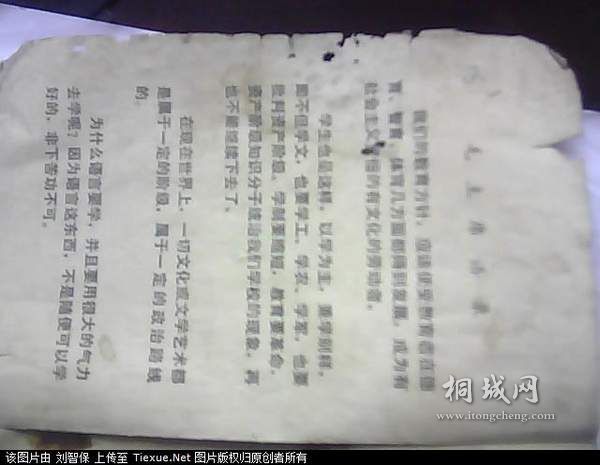 毛主席语录
我们的教育方针，应该使受教育者在德
育、智育、体育几方面都得到发展，成为有
社会主义觉悟的有文化的劳动者。
学生也是这样，以学为主，兼学别样，
即不但学文，也要学工、学农、学军，也要
批判资产阶级。学制要缩短，教育要革命，
资产阶级知识分子统治我们学校的现象，再
也不能继续下去了。
在现在世界上，一切文化或文学艺术都
是属于一定的阶级，属于一定的政治路线
的。
为什么语言要学，并且要用很大的气力
去学呢？因为语言这东西，不是随便可以学
好的，非下苦功不可。
桐城网
www.itongcheng.com
该图片由 刘智保 上传至 Tiexue.Net 图片版权归原创者所有